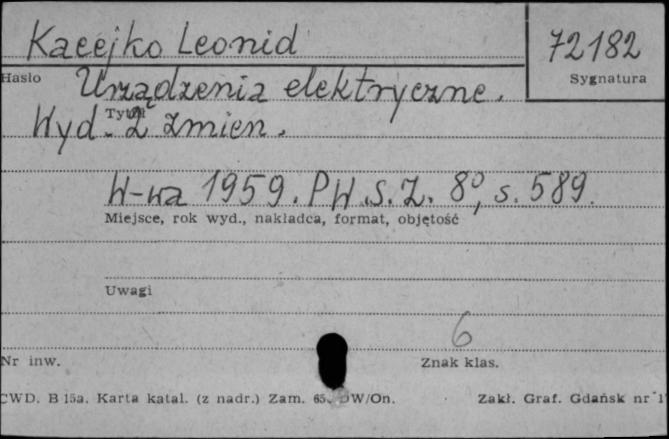 Kacejko Leonid
72182
Hasło
Sygnatura
Urządzenia elektryczne.
Tytuł
Wyd. 2 zmien.
W-wa 1959. PW.S.Z. 8°, s. 589.
Miejsce, rok wyd., nakładca, format, objętość
Uwagi
6
Nr inw.
Znak klas.
CWD. B 15a. Karta katal. (z nadr.) Zam. 65. W/On.
Zakł. Graf. Gdańsk nr 1